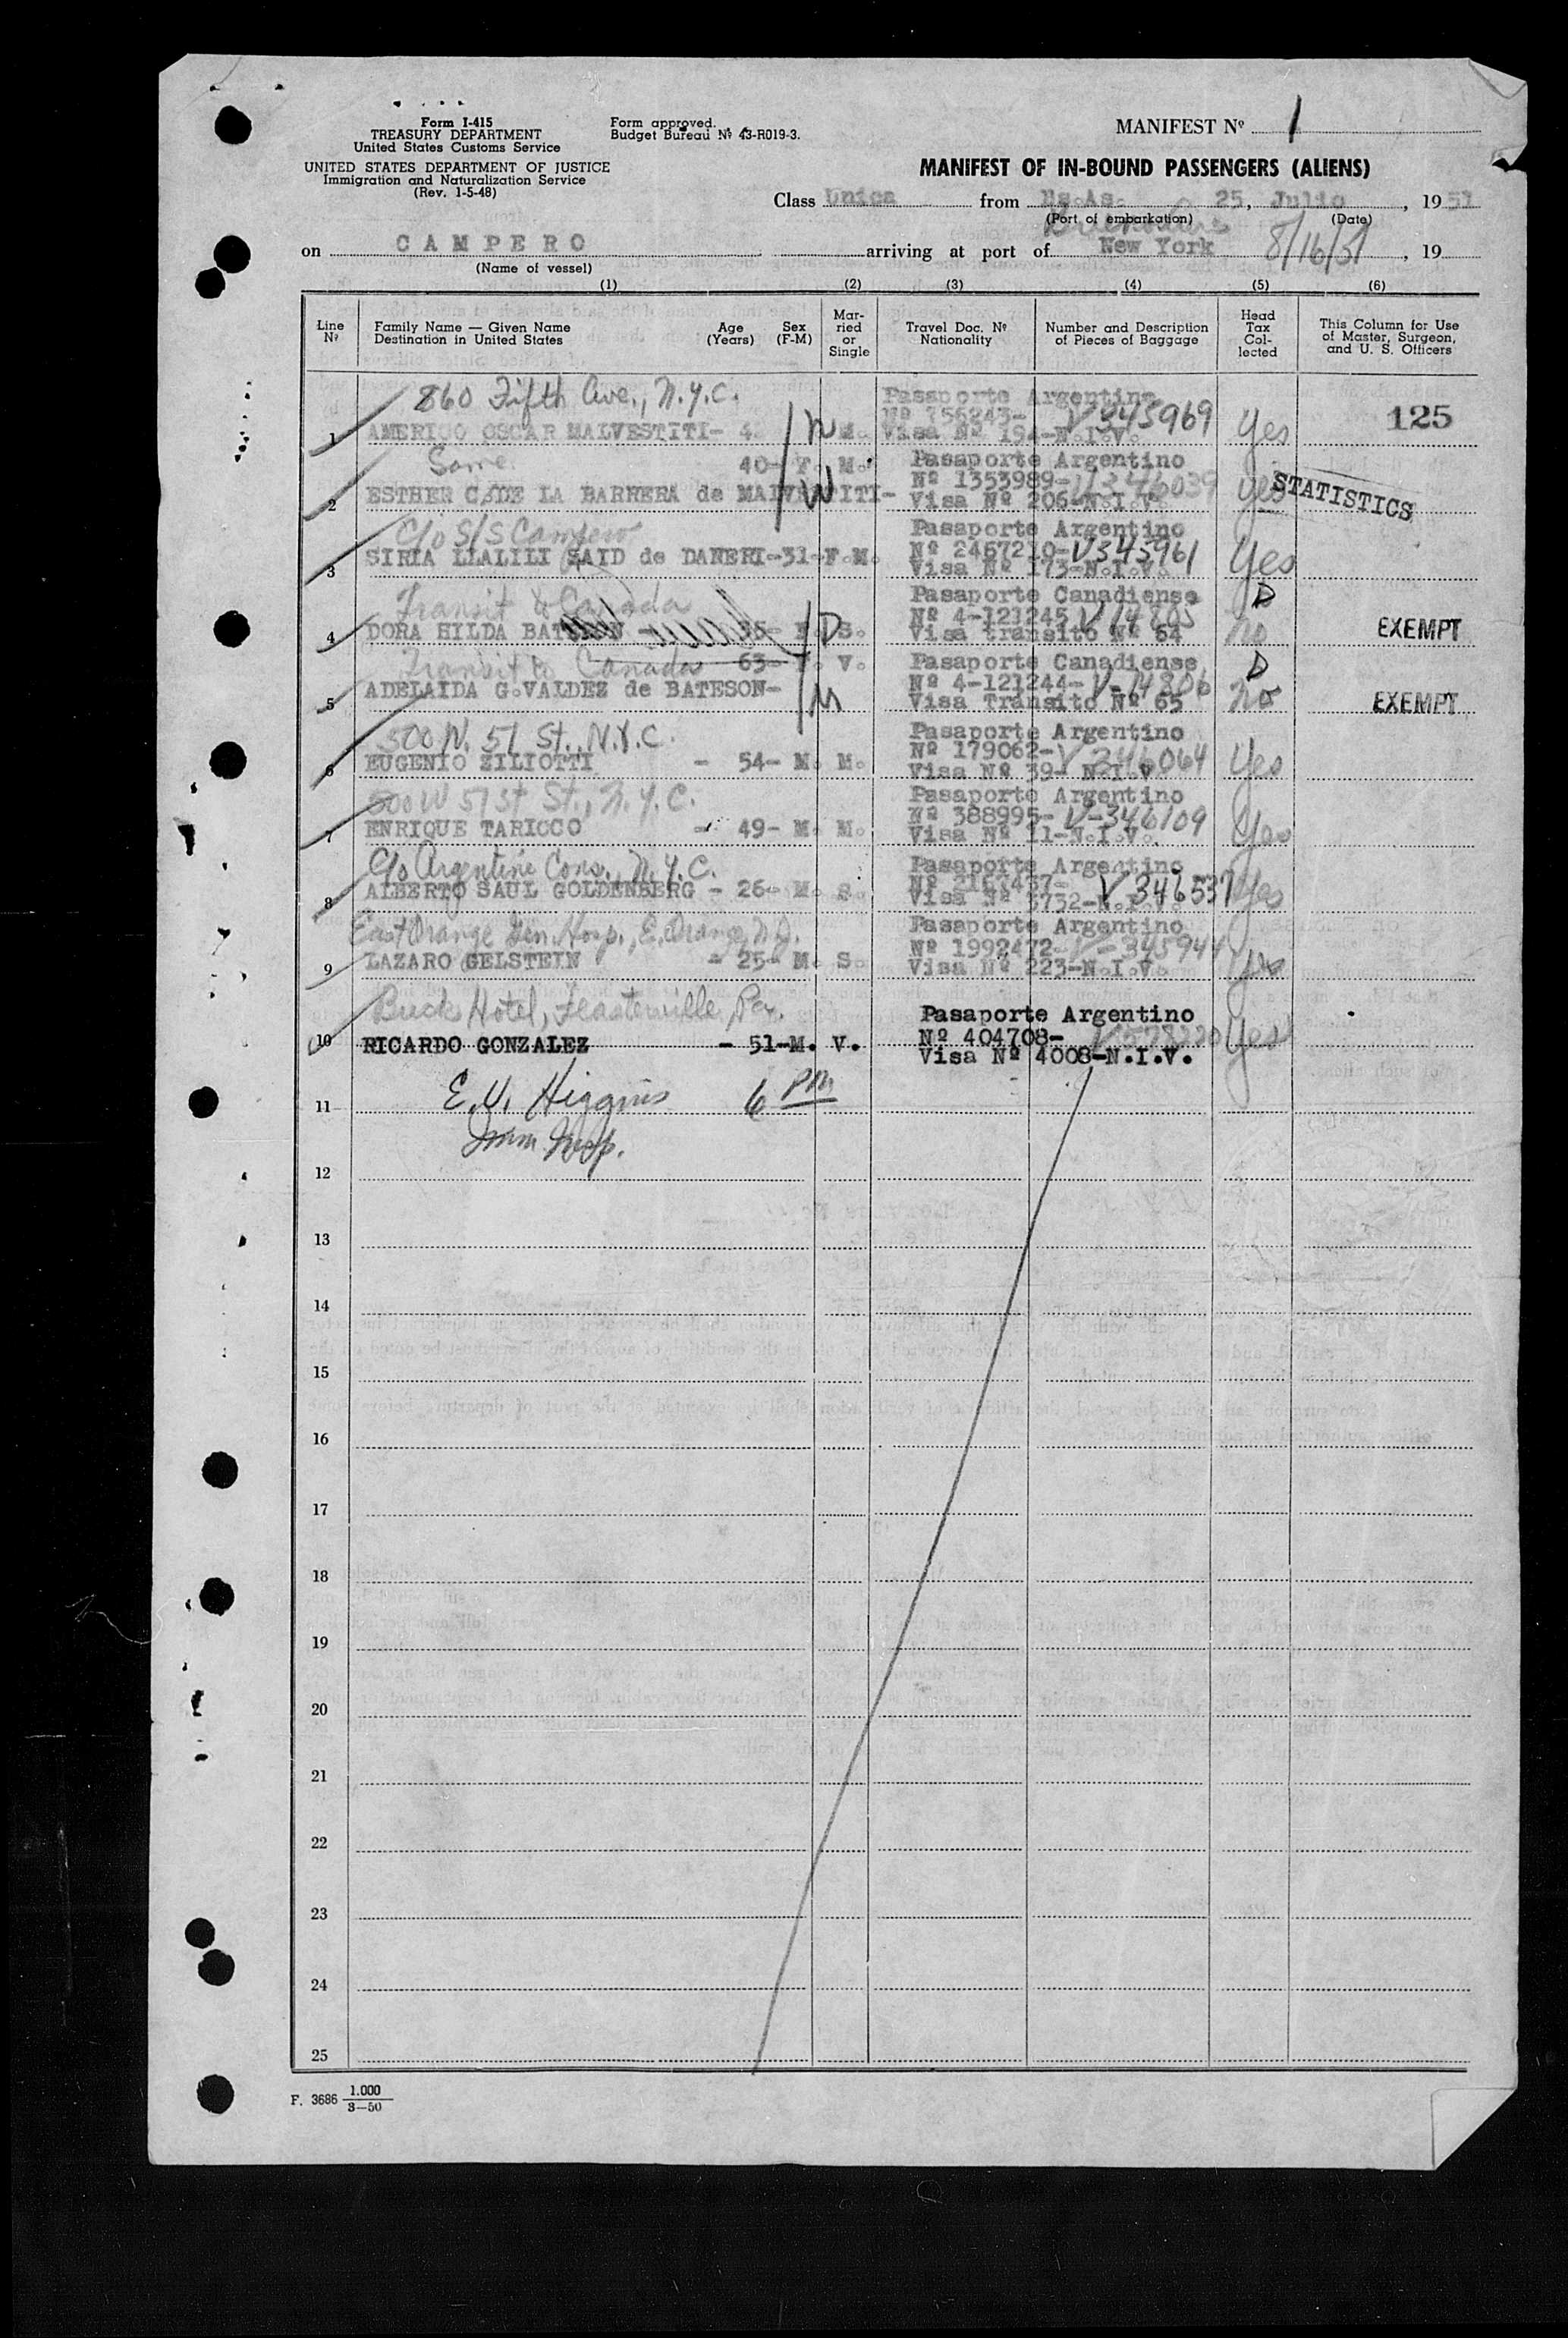 Form I-415
TREASURY DEPARTMENT
United States Customs Service
UNITED STATES DEPARTMENT OF JUSTICE
Immigration and Naturalization Service
(Rev. 1-5-48)
Form approved.
Budget Bureau Nº 43-R019-3.
MANIFEST Nº 1
MANIFEST OF IN-BOUND PASSENGERS (ALIENS)
Class Unica from Bs.As. 25, Julio, 1951
(Port of embarkation) (Date)
Buenos Aires
on CAMPERO arriving at port of New York 8/16/51, 19
(Name of vessel)
(1) (2) (3) (4) (5) (6)
Line Nº
Family Name — Given Name
Destination in United States
Age (Years)
Sex (F-M)
Married or Single
Travel Doc. Nº
Nationality
Number and Description
of Pieces of Baggage
Head Tax Collected
This Column for Use
of Master, Surgeon,
and U. S. Officers
860 Fifth Ave., N.Y.C. Pasaporte Argentino
Nº 256243- V 345969 Yes 125
1 AMERIGO OSCAR MALVESTITI- M. Visa Nº 194-N.I.V.
Same 40- F. M. Pasaporte Argentino
Nº 1353989- V346039 yes STATISTICS
2 ESTHER C. DE LA BARRERA de MALVESTITI- Visa Nº 206-N.I.V.
C/o S/S Campero Pasaporte Argentino
Nº 2467210- V345961 Yes
3 SIRIA LLALILI SAID de DANERI-31-F.M. Visa Nº 173-N.I.V.
Transit to Canada Pasaporte Canadiense D
Nº 4-121245 V 14805 no EXEMPT
4 DORA HILDA BATESON - S. Visa transito Nº 64
Transit to Canada 63- F. V. Pasaporte Canadiense D
Nº 4-121244- V-14806 no EXEMPT
5 ADELAIDA G.VALDEZ de BATESON- Visa Transito Nº 65
500 W. 51 St., N.Y.C. Pasaporte Argentino
Nº 179062- V 346064 Yes
6 EUGENIO ZILIOTTI - 54- M. M. Visa Nº 39- N.I.V.
500 W 51st St., N.Y.C. Pasaporte Argentino
Nº 388995- V-346109 Yes
7 ENRIQUE TARICCO - 49- M. M. Visa Nº 11-N.I.V.
C/o Argentine Cons., N.Y.C. Pasaporte Argentino
V 346537 Yes
8 ALBERTO SAUL GOLDENBERG - 26- M. S. Visa Nº 3732-N.I.V.
East Orange Gen. Hosp., E. Orange, N.J. Pasaporte Argentino
Nº 1992472- V-345944
9 LAZARO GELSTEIN - 25- M. S. Visa Nº 223-N.I.V.
Buck Hotel, Feasterville, Pa. Pasaporte Argentino
Nº 404708- Yes
10 RICARDO GONZALEZ - 51-M. V. Visa Nº 4008-N.I.V.
E.V. Higgins 6 PM
11
Imm. Insp.
12
13
14
15
16
17
18
19
20
21
22
23
24
25
F. 3686 1.000
3—50